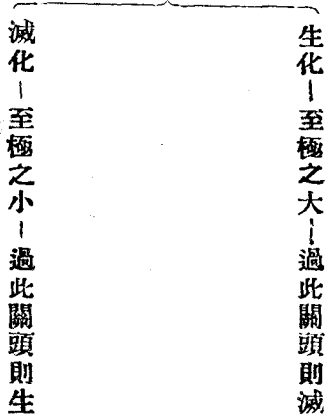 生化－至極之大－過此關頭則滅
滅化－至極之小－過此關頭則生